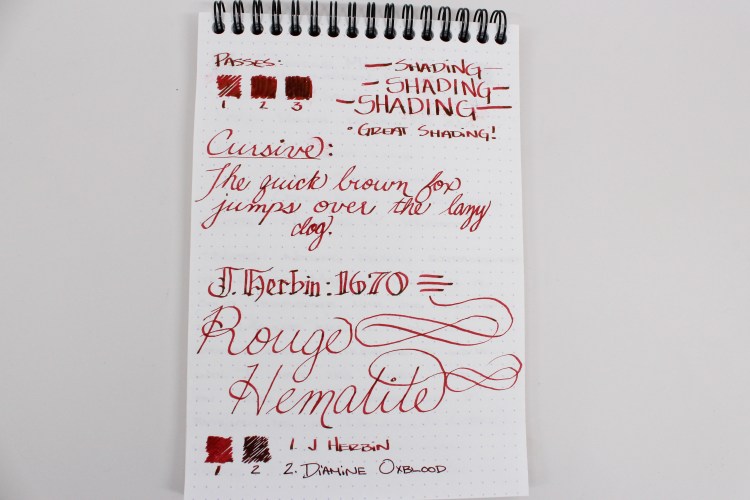 PASSES:
1 2 3
SHADING
SHADING
SHADING
• GREAT SHADING!
Cursive:
The quick brown fox
jumps over the lazy
dog.
J. Herbin: 1670
Rouge
Hematite
1 2
1. J HERBIN
2. DIAMINE OXBLOOD